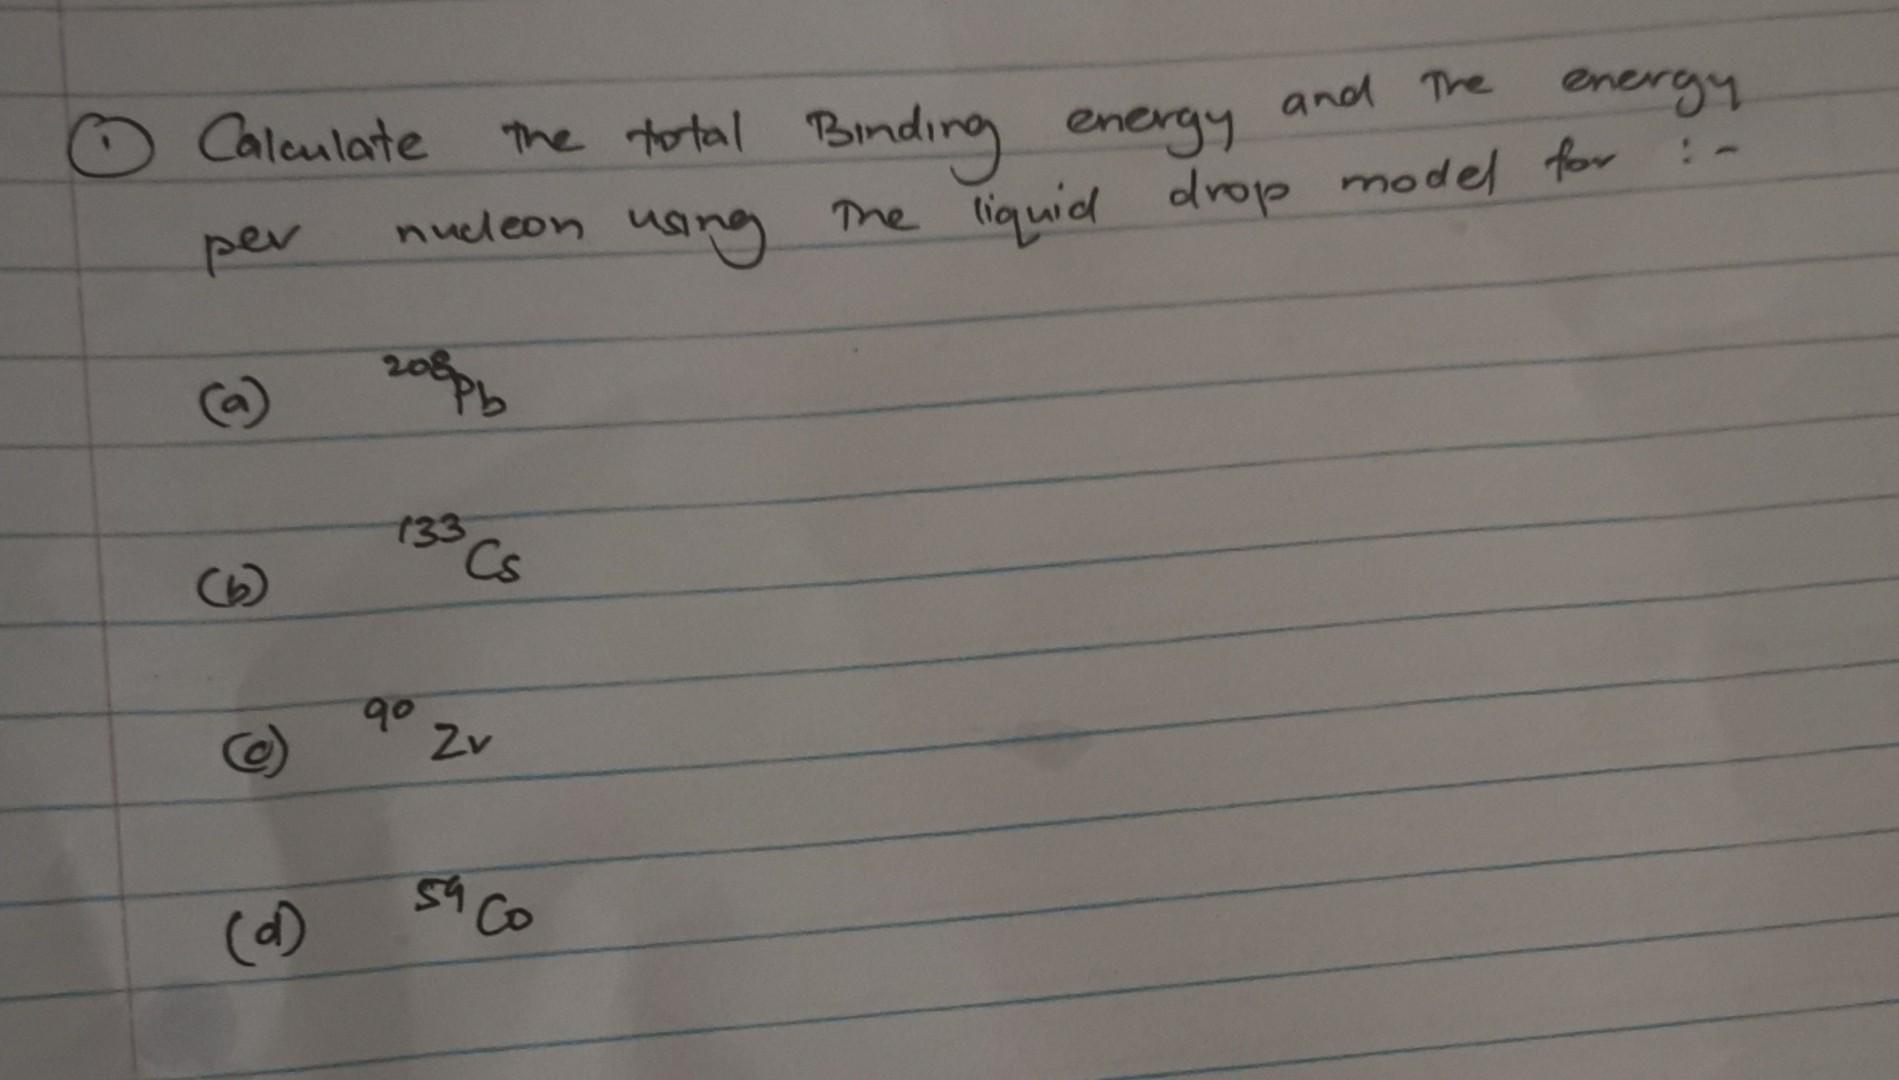 ① Calculate the total Binding energy and The energy
per nucleon using The liquid drop model for :-
(a) ²⁰⁸Pb
(b) ¹³³Cs
(c) ⁹⁰Zr
(d) ⁵⁹Co